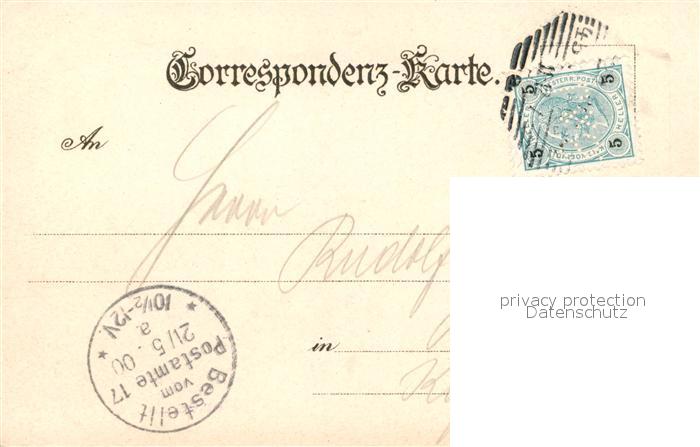 Correspondenz-Karte.
An
Herrn
Rudolf
in
5 5
5 5
HELLER
privacy protection
Datenschutz
Bestellt
vom
Postamte 17
21/5 . 00
a
* 10½-12V *